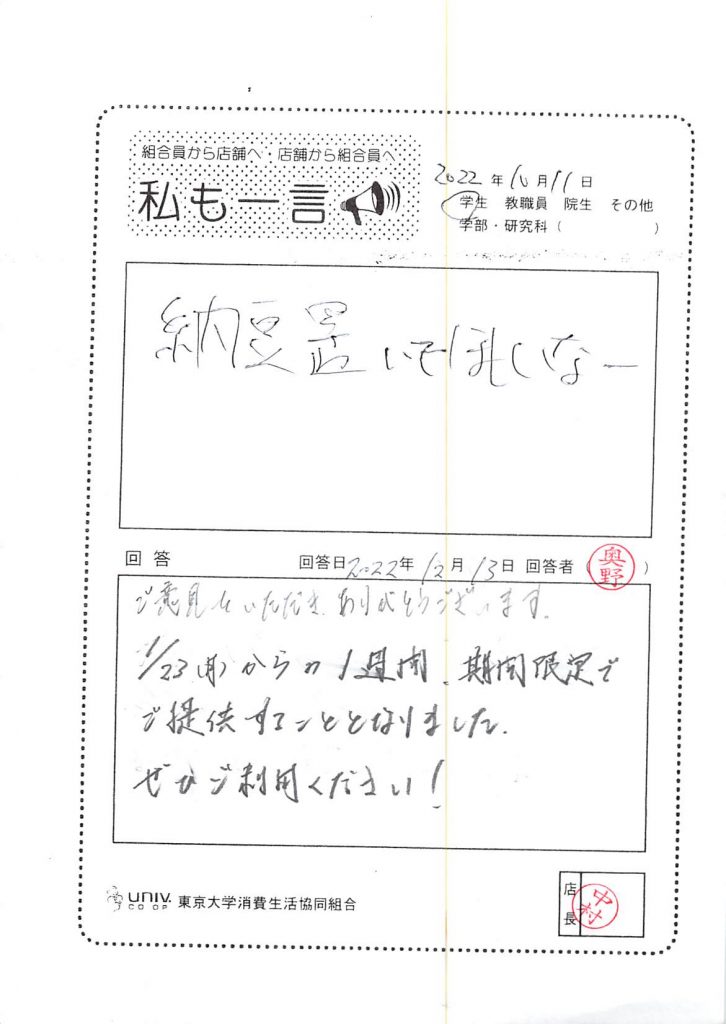 組合員から店舗へ・店舗から組合員へ
私も一言
2022年10月11日
学生 教職員 院生 その他
学部・研究科（　　　）
納豆置いてほしいなー
回答 回答日2022年12月13日 回答者（奥野）
ご意見をいただき、ありがとうございます。
1/23(月)からの1週間、期間限定で
ご提供することとなりました。
ぜひご利用ください!
UNIV. CO-OP 東京大学消費生活協同組合
店長 中村